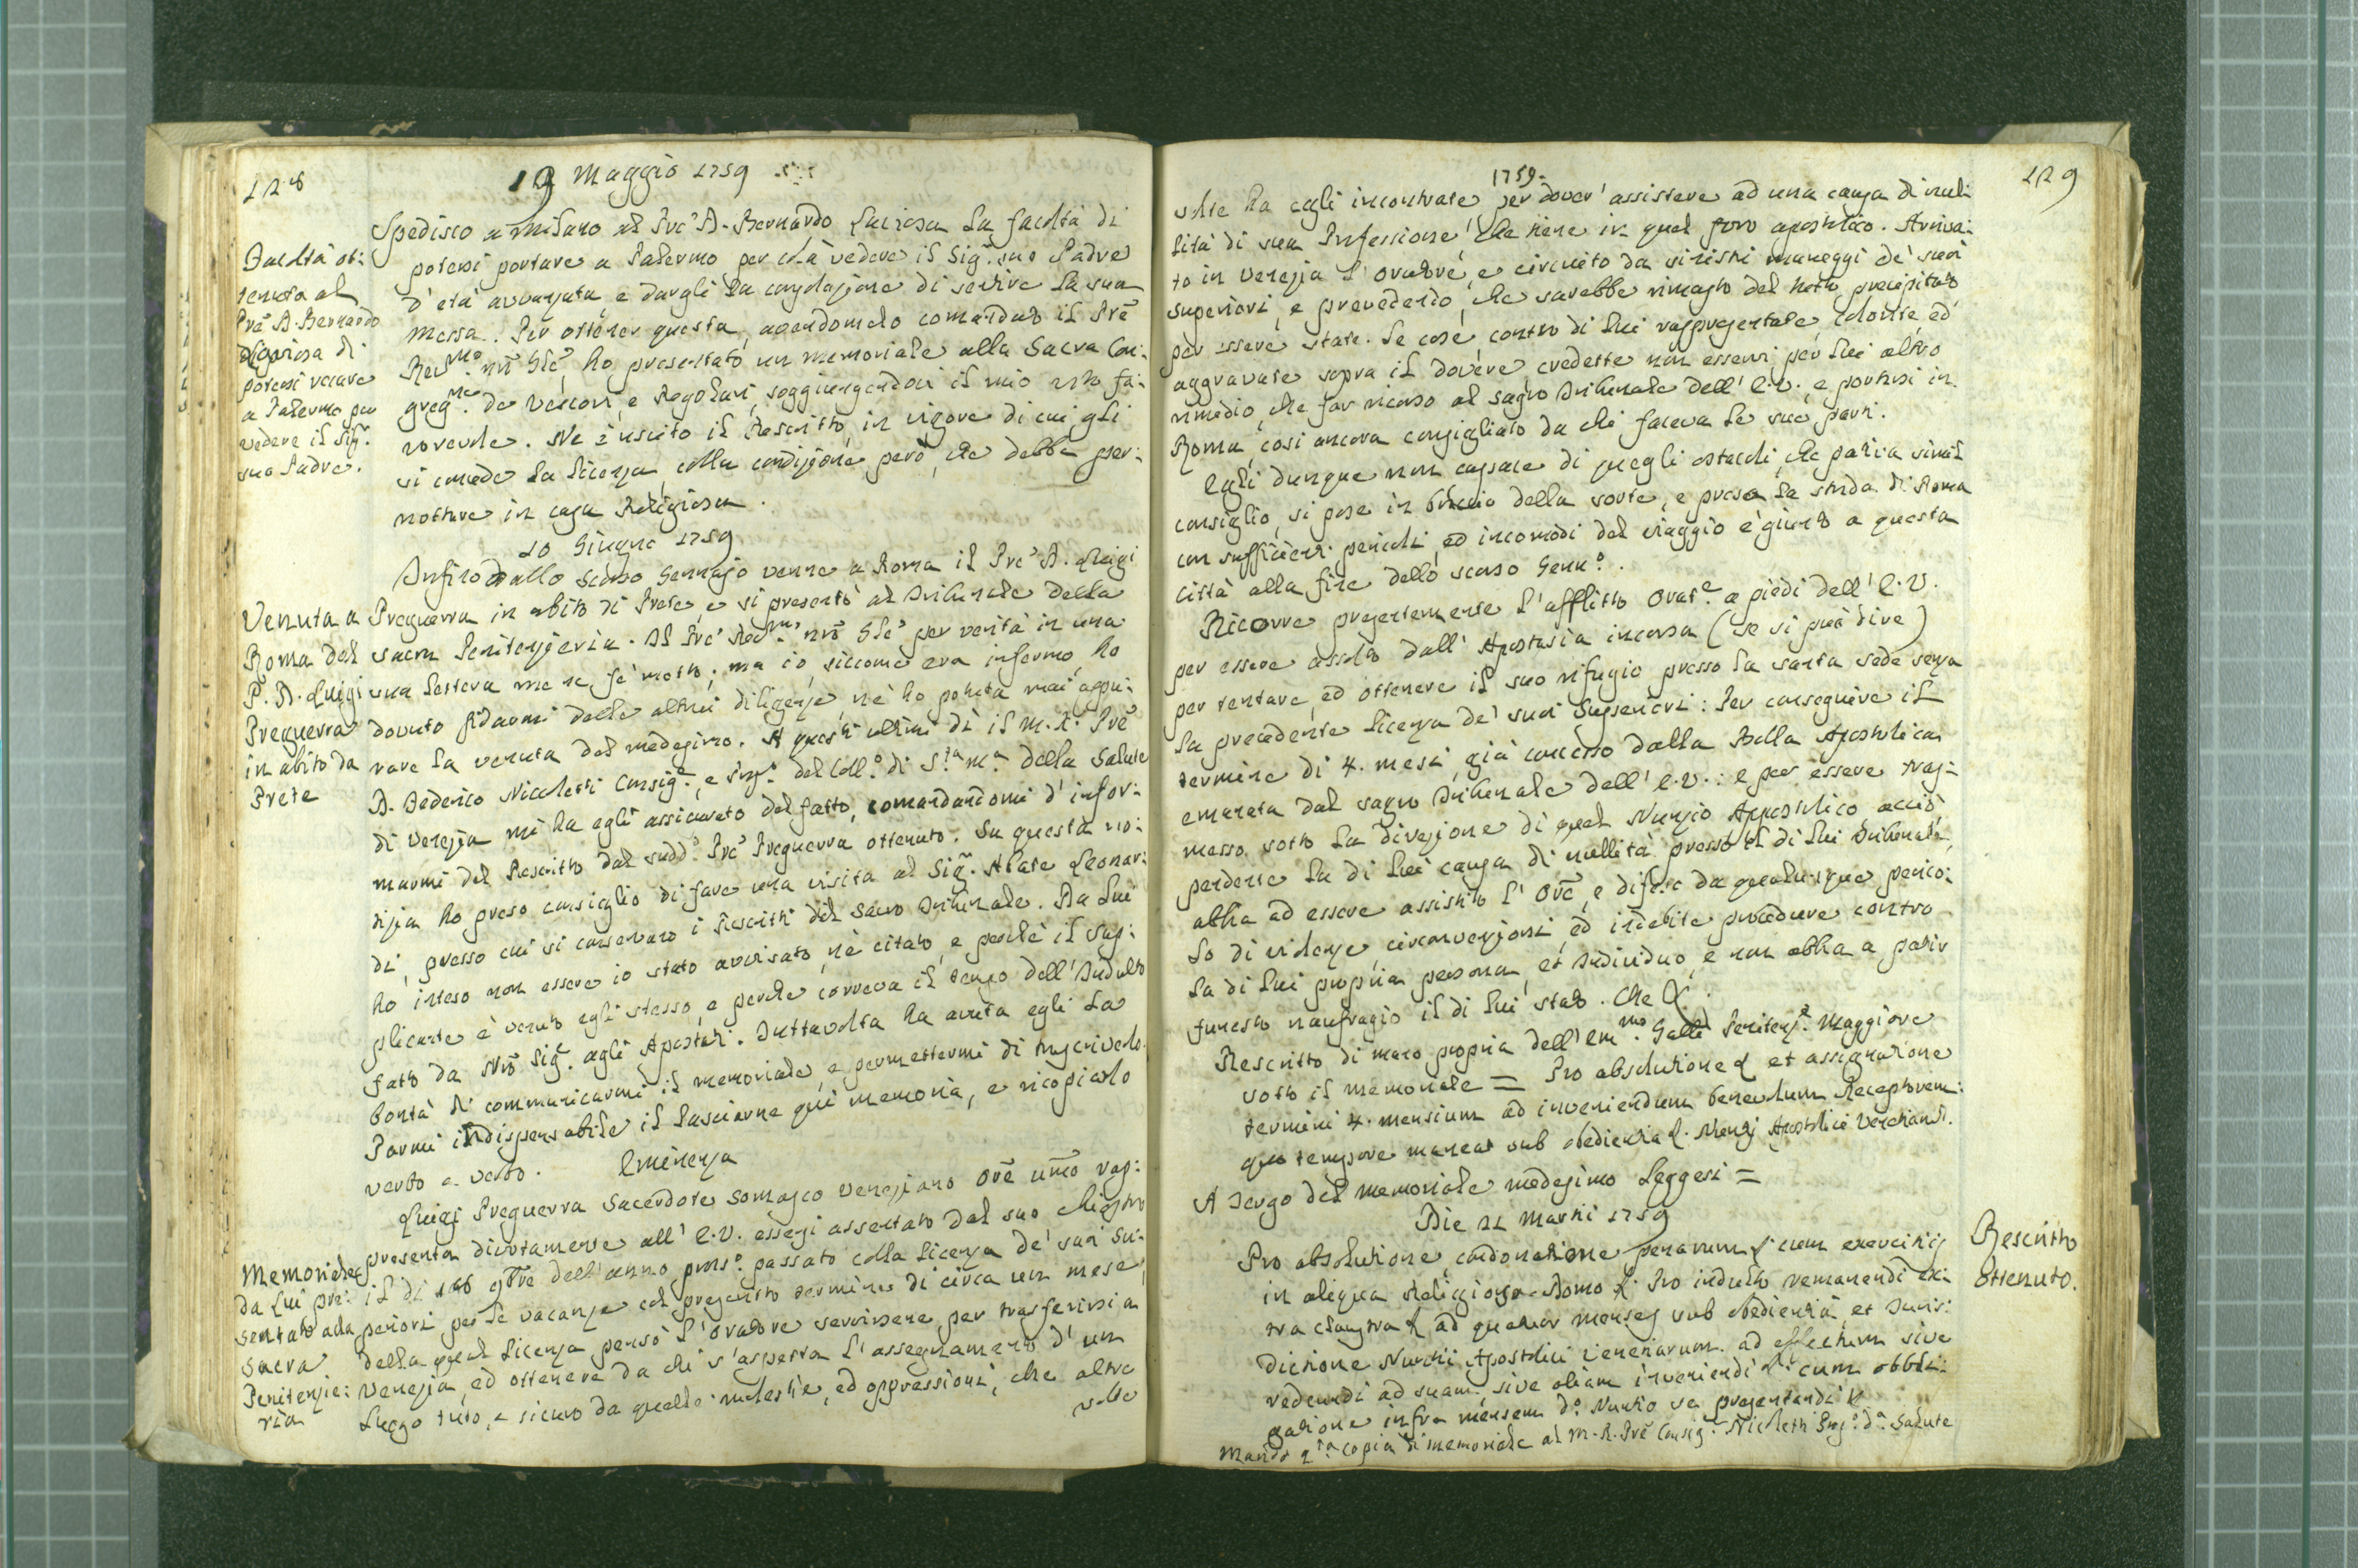 128
19 Maggio 1759
Spedisco a Milano al Pre' D. Bernardo Laviosa la facoltà di
potersi portare a Palermo per colà vedere il Sig. suo Padre
d'età avvanzata, e dargli la consolazione di sentire la sua
messa. Per ottener questa, avendomelo comandato il Prē
Rev.mo nrō Gle' ho presentato un memoriale alla Sacra Con:
greg.ne de Vescovi, e Regolari, soggiungendovi il mio voto fa:
vorevole. Ne è uscito il Rescritto, in vigore di cui gli
si concede la licenza, colla condizione però, che debba per:
nottare in casa Religiosa.
Facoltà ot:
tenuta al
Prē D. Bernardo
Laviosa di
potersi recare
a Palermo per
vedere il Sig.r
suo Padre.
10 Giugno 1759
Infino dallo scorso Gennajo venne a Roma il Pre' D. Luigi
Preguerra in abito di Prete, e si presentò al Tribunale della
sacra Penitenzieria. Il Pre' Rev.mo nrō Gle' per verità in una
sua lettera me ne fè motto; ma io, siccome era infermo, ho
dovuto fidarmi delle altrui diligenze, nè ho potuta mai appu:
rare la venuta del medesimo. A questi ultimi dì il M. R. Prē
D. Federico Nicoletti Consig.e, e Prep.o del Coll.o di S.ta M.a della Salute
di Venezia mi ha egli assicurato del fatto, comandandomi d'infor:
marmi del Rescritto dal sudd.o Pre' Preguerra ottenuto. Su questa no:
tizia ho preso consiglio di fare una visita al Sig.r Abate Leonar:
di, presso cui si conservano i Rescritti del Sacro Tribunale. Da lui
ho inteso non essere io stato avvisato, nè citato, e perchè il sup:
plicante è venuto egli stesso, e perchè correva il tempo dell'Indulto
fatto da Nrō Sig.e agli Apostati. Tuttavolta ha avuta egli la
bontà di communicarmi il memoriale, e permettermi di trascriverlo.
Parmi indispensabile il lasciarne quì memoria, e ricopiarlo
verbo a verbo.
Venuta a
Roma del
P. D. Luigi
Preguerra
in abito da
Prete
Eminenza
Luigi Preguerra Sacerdote Somasco Veneziano Orē umō rap:
presenta divotamente all'E.V. essersi assentato dal suo chiostro
il dì 10 9bre dell'anno pross.o passato colla licenza de' suoi Su:
periori per le vacanze col prescritto termine di circa un mese,
della qual licenza pensò l'oratore servirsene per trasferirsi a
Venezia, ed ottenere da chi s'aspetta l'assegnamento d'un
luogo tuto, e sicuro da quelle molestie, ed oppressioni, che altre
volte
Memoriale
da lui pre:
sentato alla
Sacra
Penitenzie:
ria
1759.
129
volte ha egli incontrate per dover'assistere ad una causa di nul:
lità di sua Professione, che tiene in quel foro apostolico. Arriva:
to in Venezia l'oratore, e circuito da sinistri maneggi de' suoi
superiori, e prevedendo, che sarebbe rimasto del tutto precipitato
per essere state le cose contro di lui rappresentate, colorite, ed
aggravate sopra il dovere, credette non esservi per lui altro
rimedio, che far ricorso al sagro Tribunale dell'E.V., e portarsi in
Roma, così ancora consigliato da chi faceva le sue parti.
Egli dunque non capace di quegli ostacoli, che pativa simil
consiglio, si pose in braccio della sorte, e presa la strada di Roma
con sufficienti pericoli, ed incomodi del viaggio è giunto a questa
città alla fine dello scorso Genn.o.
Ricorre presentemente l'afflitto Orat.e a piedi dell'E.V.
per essere assolto dall'Apostasia incorsa (se si può dire)
per tentare, ed ottenere il suo rifugio presso la santa sede senza
la precedente licenza de' suoi Superiori: Per conseguire il
termine di 4. mesi, già concesso dalla Bolla Apostolica
emanata dal sagro Tribunale dell'E.V.: e per essere tras:
messo sotto la direzione di quel Nunzio Appostolico acciò
pendente la di lui causa di nullità presso il di lui Tribunale,
abbia ad essere assistito l'Orē, e difeso da qualunque perico:
lo di violenze, circonvenzioni, ed indebite procedure contro
la di lui propria persona, et individuo, e non abbia a patir
funesto naufragio il di lui stato. Che &.
Rescritto di mano propria dell'Em.mo Galli Penitenz.e Maggiore
sotto il memoriale = Pro absolutione & et assignatione
termini 4. mensium ad inveniendum benevolum Receptorem:
quo tempore maneat sub obedientia &. Nuntij Apostolici Venetiarū.
A tergo del memoriale medesimo leggesi =
Die 21 Martii 1759
Pro absolutione, condonatione penarum & cum exercitijs
in aliqua Religiosa Domo &. Pro indulto remanendi ex:
tra claustra & ad quatuor menses sub obedientia, et Juris:
dictione Nuntii Apostolici Venetiarum ad effectum sive
redeundi ad suam, sive aliam inveniendi & cum obbli:
gatione infra mensem d.o Nuntio se presentandi &
Mando q.ta copia di memoriale al M. R. Prē Consig.e Nicoletti Prep.o d.a Salute
Rescritto
Ottenuto.